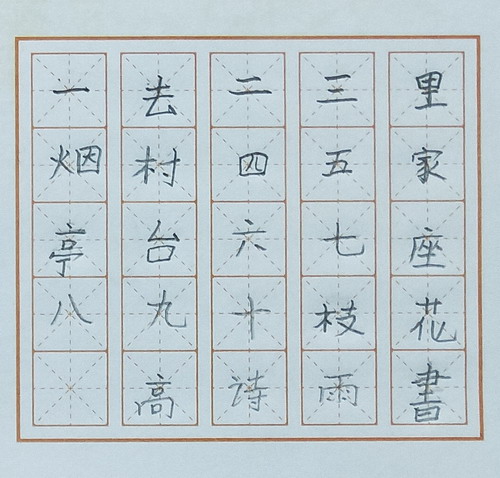 一去二三里
烟村四五家
亭台六七座
八九十枝花
高诗雨書